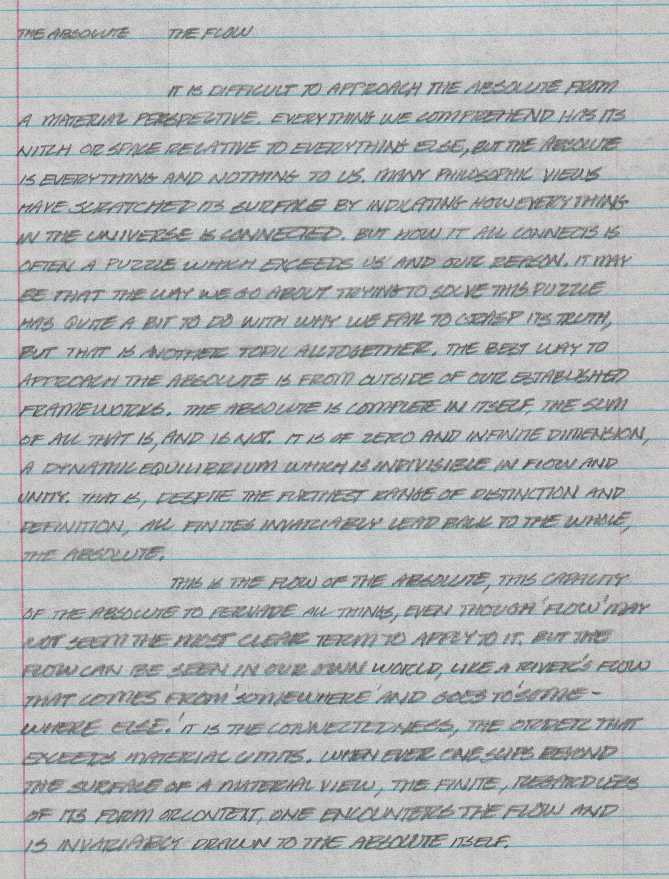 THE ABSOLUTE THE FLOW
IT IS DIFFICULT TO APPROACH THE ABSOLUTE FROM
A MATERIAL PERSPECTIVE. EVERYTHING WE COMPREHEND HAS ITS
NITCH OR SPACE RELATIVE TO EVERYTHING ELSE, BUT THE ABSOLUTE
IS EVERYTHING AND NOTHING TO US. MANY PHILOSOPHIC VIEWS
HAVE SCRATCHED ITS SURFACE BY INDICATING HOW EVERYTHING
IN THE UNIVERSE IS CONNECTED. BUT HOW IT ALL CONNECTS IS
OFTEN A PUZZLE WHICH EXCEEDS US AND OUR REASON. IT MAY
BE THAT THE WAY WE GO ABOUT TRYING TO SOLVE THIS PUZZLE
HAS QUITE A BIT TO DO WITH WHY WE FAIL TO GRASP ITS TRUTH,
BUT THAT IS ANOTHER TOPIC ALLTOGETHER. THE BEST WAY TO
APPROACH THE ABSOLUTE IS FROM OUTSIDE OF OUR ESTABLISHED
FRAMEWORKS. THE ABSOLUTE IS COMPLETE IN ITSELF, THE SUM
OF ALL THAT IS, AND IS NOT. IT IS OF ZERO AND INFINITE DIMENSION,
A DYNAMIC EQUILIBRIUM WHICH IS INDIVISIBLE IN FLOW AND
UNITY. THAT IS, DESPITE THE FURTHEST RANGE OF DISTINCTION AND
DEFINITION, ALL FINITES INVARIABLY LEAD BACK TO THE WHOLE,
THE ABSOLUTE.
THIS IS THE FLOW OF THE ABSOLUTE, THIS CAPACITY
OF THE ABSOLUTE TO PERVADE ALL THINGS, EVEN THOUGH 'FLOW' MAY
NOT SEEM THE MOST CLEAR TERM TO APPLY TO IT. BUT THE
FLOW CAN BE SEEN IN OUR OWN WORLD, LIKE A RIVER'S FLOW
THAT COMES FROM 'SOMEWHERE' AND GOES TO 'SOME-
WHERE ELSE.' IT IS THE CONNECTEDNESS, THE ORDER THAT
EXCEEDS MATERIAL LIMITS. WHEN EVER ONE SLIPS BEYOND
THE SURFACE OF A MATERIAL VIEW, THE FINITE, REGARDLESS
OF ITS FORM OR CONTENT, ONE ENCOUNTERS THE FLOW AND
IS INVARIABLY DRAWN TO THE ABSOLUTE ITSELF.